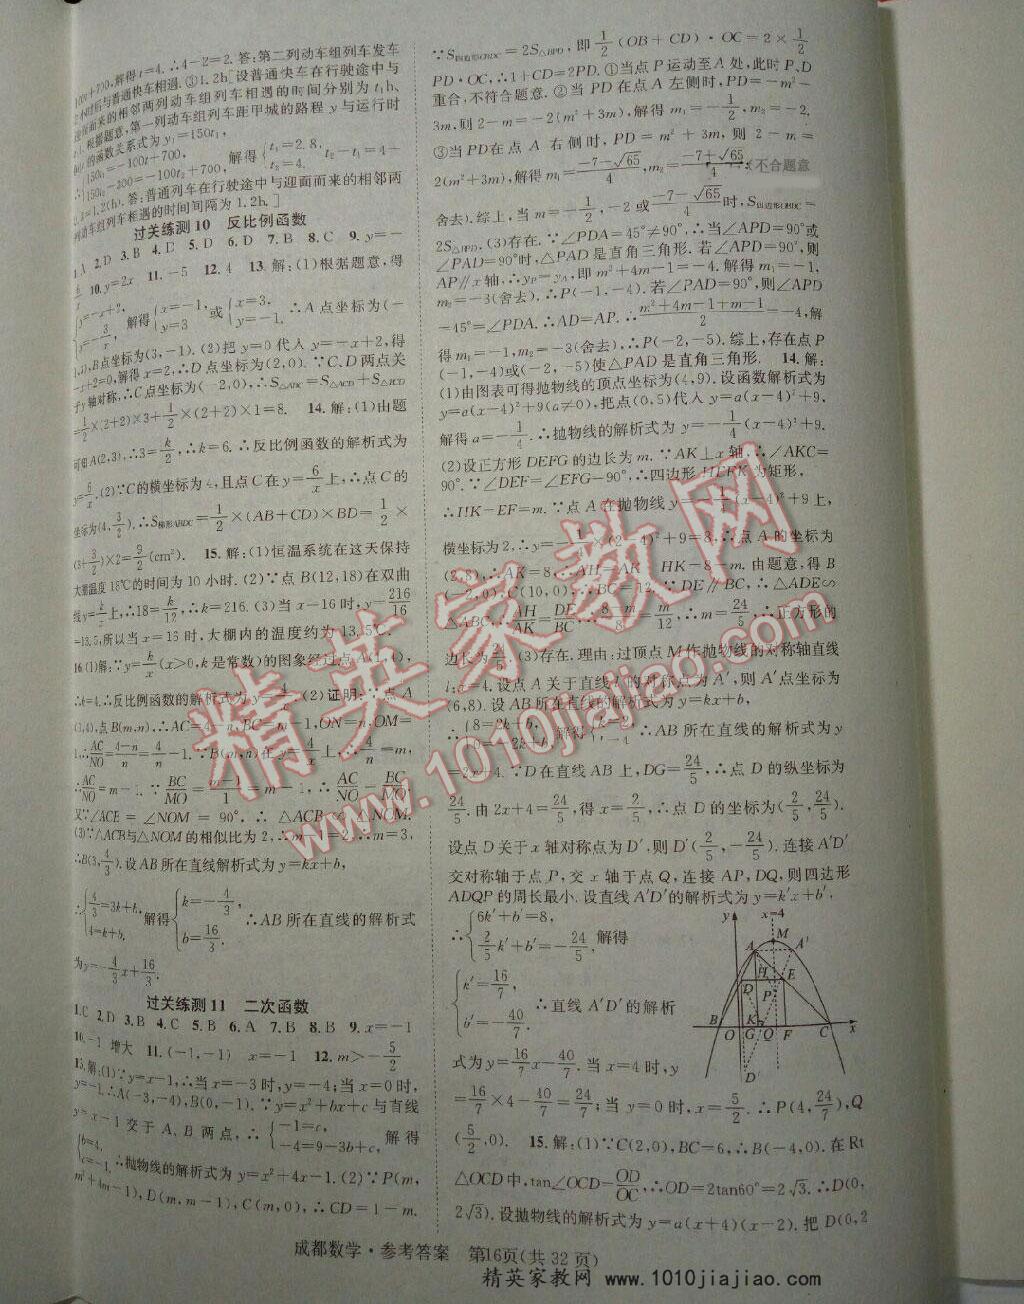 100t+700,解得t=4.∴4-2=2.答:第二列动车组列车发车
小时后与普通快车相遇.③1.2h[设普通快车在行驶途中与
迎面而来的相邻两列动车组列车相遇的时间分别为t₁h、
根据题意,第一列动车组列车距甲城的路程y与运行时
的函数关系式为y₁=150t₁,
150t₁=-100t+700,
150t₂-300=-100t₂+700,
解得 t₁=2.8, t₂=4. ∴t₂-t₁=4-
=1.2(h).答:普通列车在行驶途中与迎面而来的相邻两
列动车组列车相遇的时间间隔为1.2h.]
过关练测10 反比例函数
1.A 2.D 3.B 4.D 5.D 6.D 7.B 8.C 9.y=-
10.y=2x 11.-5 12.4 13.解:(1)根据题意,得
y=-x+2, y=-3/x, 解得 x=-1, y=3 或 x=3, y=-1. ∴A点坐标为(-
1,3),B点坐标为(3,-1).(2)把y=0代入y=-x+2,得
-x+2=0,解得x=2,∴D点坐标为(2,0).∵C、D两点关
于y轴对称,∴C点坐标为(-2,0),∴S△ABC=S△ACD+S△BCD
=1/2×(2+2)×3+1/2×(2+2)×1=8. 14.解:(1)由题
可知A(2,3),∴3=k/2,∴k=6.∴反比例函数的解析式为
y=6/x.(2)∵C的横坐标为4,且点C在y=6/x上,∴点C的
坐标为(4,3/2).∴S梯形ABDC=1/2×(AB+CD)×BD=1/2×
(3+3/2)×2=9/2(cm²). 15.解:(1)恒温系统在这天保持
大棚温度18℃的时间为10小时.(2)∵点B(12,18)在双曲
线y=k/x上,∴18=k/12,∴k=216.(3)当x=16时,y=216/16
=13.5,所以当x=16时,大棚内的温度约为13.5℃.
16.(1)解:∵y=k/x(x>0,k是常数)的图象经过点A(1,4),
∴k=4.∴反比例函数的解析式为y=4/x.(2)证明:∵点A
(1,4),点B(m,n),∴AC=4-n,BC=m-1,ON=n,OM=
1,∴AC/NO=4-n/n=4/n-1.∵B(m,n)在y=4/x上,∴4/n=m,
∴AC/NO=m-1.∵BC/MO=m-1/1=m-1,∴AC/NO=BC/MO.
又∵∠ACB=∠NOM=90°,∴△ACB∽△NOM.
(3)∵△ACB与△NOM的相似比为2,∴m-1=2,∴m=3,
∴B(3,4/3).设AB所在直线解析式为y=kx+b,
∴ 4/3=3k+b, 4=k+b. 解得 k=-4/3, b=16/3. ∴AB所在直线的解析式
为y=-4/3x+16/3.
过关练测11 二次函数
1.C 2.D 3.B 4.C 5.B 6.A 7.B 8.B 9.x=-1
10.-1 增大 11.(-1,-1) x=-1 12.m>-5/2
13.解:(1)∵y=x-1,∴当x=-3时,y=-4;当x=0时,
y=-1.∴A(-3,-4),B(0,-1).∵y=x²+bx+c与直线
y=x-1交于A、B两点,∴ -1=c, -4=9-3b+c, 解得
b=4, c=-1. ∴抛物线的解析式为y=x²+4x-1.(2)∵P(m,
m²+4m-1),D(m,m-1),C(m,0),∴CD=1-m.
∵S四边形OBDC=2S△BPD,即1/2(OB+CD)·OC=2×1/2
PD·OC,∴1+CD=2PD.①当点P运动至A处,此时P、D
重合,不符合题意.②当PD在点A左侧时,PD=-m²-
3m,则2-m=-2(m²+3m),解得m₁=-1/2,m₂=-2.
③当PD在点A右侧时,PD=m²+3m,则2-m=
2(m²+3m),解得m₁=-7-√65/4,m₂=-7+√65/4(不合题意
舍去).综上,当m=-1/2,-2或-7-√65/4时,S四边形OBDC=
2S△BPD.(3)存在.∵∠PDA=45°≠90°,∴当∠APD=90°或
∠PAD=90°时,△PAD是直角三角形.若∠APD=90°,则
AP∥x轴,∴yP=yA,即m²+4m-1=-4.解得m₁=-1,
m₂=-3(舍去).∴P(-1,-4).若∠PAD=90°,则∠APD
=45°=∠PDA.∴AD=AP.∴m²+4m-1+m-1/2=-4,解
得m₁=-1,m₂=-3(舍去),∴P(-2,-5).综上,存在点P
(-1,-4)或(-2,-5)使△PAD是直角三角形. 14.解:
(1)由图表可得抛物线的顶点坐标为(4,9).设函数解析式为
y=a(x-4)²+9(a≠0),把点(0,5)代入y=a(x-4)²+9,
解得a=-1/4.∴抛物线的解析式为y=-1/4(x-4)²+9.
(2)设正方形DEFG的边长为m.∵AK⊥x轴,∴∠AKC=
90°.∵∠DEF=∠EFG=90°,∴四边形HEFK为矩形,
∴HK=EF=m.∵点A在抛物线y=-1/4(x-4)²+9上,
横坐标为2,∴y=-1/4×(2-4)²+9=8,∴点A的坐标为
(2,8),∴AK=8,∴AH=AK-HK=8-m.由题意,得B
(-2,0),C(10,0),∴BC=12.∵DE∥BC,∴△ADE∽
△ABC,∴AH/AK=DE/BC,∴8-m/8=m/12,∴m=24/5,∴正方形的
边长为24/5.(3)存在.理由:过顶点M作抛物线的对称轴直线
l:x=4.设点A关于直线l的对称点为A′,则A′点坐标为
(6,8).设AB所在直线的解析式为y=kx+b,
∴ 8=2k+b, 0=-2k+b. 解得 ∴AB所在直线的解析式为y
=2x+4.∵D在直线AB上,DG=24/5,∴点D的纵坐标为
24/5.由2x+4=24/5,得x=2/5,∴点D的坐标为(2/5,24/5).
设点D关于x轴对称点为D′,则D′(2/5,-24/5).连接A′D′
交对称轴于点P,交x轴于点Q,连接AP,DQ,则四边形
ADQP的周长最小.设直线A′D′的解析式为y=k′x+b′,
∴ 6k′+b′=8, 2/5k′+b′=-24/5, 解得
k′=16/7, b′=-40/7. ∴直线A′D′的解析
式为y=16/7x-40/7.当x=4时,y
=16/7×4-40/7=24/7;当y=0时,x=5/2.∴P(4,24/7),Q
(5/2,0). 15.解:(1)∵C(2,0),BC=6,∴B(-4,0).在Rt
△OCD中,tan∠OCD=OD/OC,∴OD=2tan60°=2√3.∴D(0,
2√3).设抛物线的解析式为y=a(x+4)(x-2).把D(0,2
y x=4 M A A′ H E D P B O G K Q F C x D′
成都数学·参考答案 第16页(共32页)
精英家教网
www.1010jiajiao.com
精英家教网 www.1010jiajiao.com